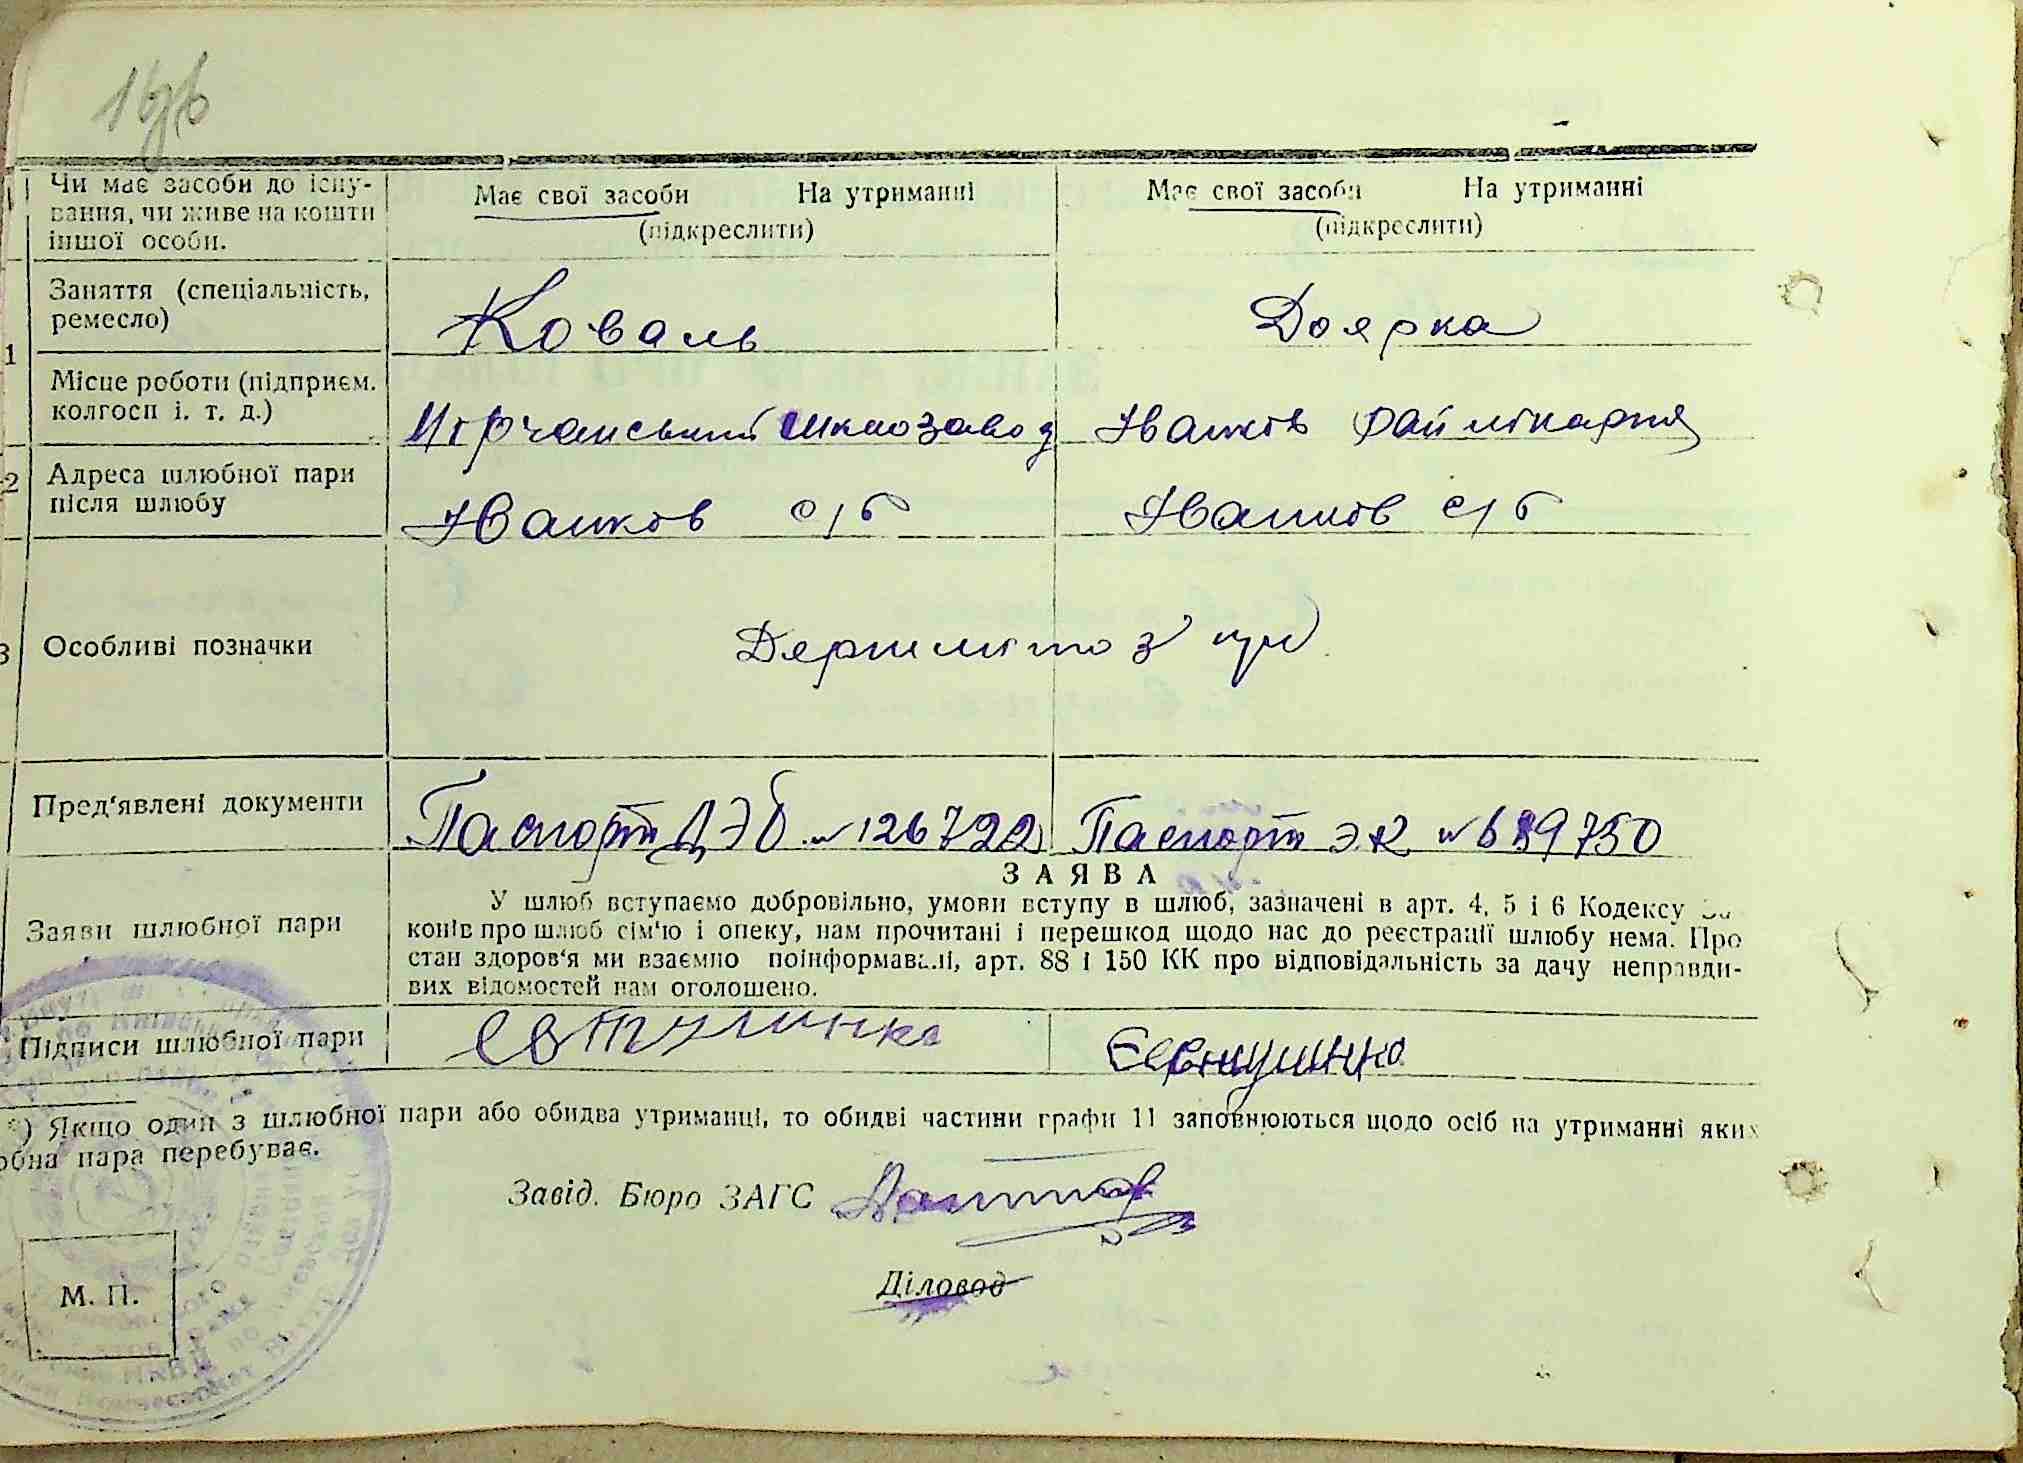 16
Чи має засоби до існу-
вання, чи живе на кошти
іншої особи.
Має свої засоби На утриманні
(підкреслити)
Має свої засоби На утриманні
(підкреслити)
1
Заняття (спеціальність,
ремесло)
Коваль
Доярка
Місце роботи (підприєм.
колгосп і. т. д.)
шклозавод
Іванків райлікарня
2
Адреса шлюбної пари
після шлюбу
Іванков с/б
Іванков с/б
3
Особливі позначки
Держмито 3
Пред'явлені документи
Паспорт ДЭБ № 126722
Паспорт ЭК № 689750
ЗАЯВА
Заяви шлюбної пари
У шлюб вступаємо добровільно, умови вступу в шлюб, зазначені в арт. 4, 5 і 6 Кодексу За-
конів про шлюб сім'ю і опеку, нам прочитані і перешкод щодо нас до реєстрації шлюбу нема. Про
стан здоров'я ми взаємно поінформавалі, арт. 88 і 150 КК про відповідальність за дачу неправди-
вих відомостей нам оголошено.
Підписи шлюбної пари
*) Якщо один з шлюбної пари або обидва утриманці, то обидві частини графи 11 заповнюються щодо осіб на утриманні яких
обна пара перебуває.
Завід. Бюро ЗАГС
Діловод
М. П.